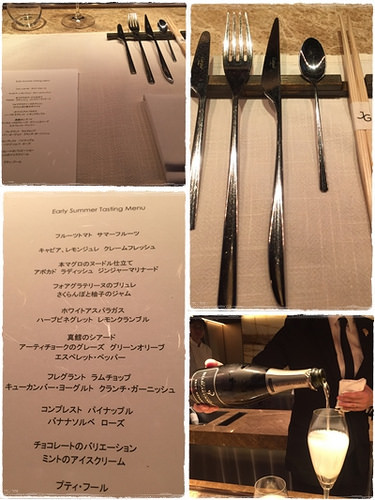 Early Summer Tasting Menu
フルーツトマト サマーフルーツ
キャビア、レモンジュレ クレームフレッシュ
本マグロのヌードル仕立て
アボカド ラディッシュ ジンジャーマリナード
フォアグラテリーヌのブリュレ
さくらんぼと柚子のジャム
ホワイトアスパラガス
ハーブビネグレット レモンクランブル
真鯛のシアード
アーティチョークのグレーズ グリーンオリーブ
エスペレット・ペッパー
フレグラント ラムチョップ
キューカンバー・ヨーグルト クランチ・ガーニッシュ
コンプレスト パイナップル
バナナソルベ ローズ
チョコレートのバリエーション
ミントのアイスクリーム
プティ・フール
JG